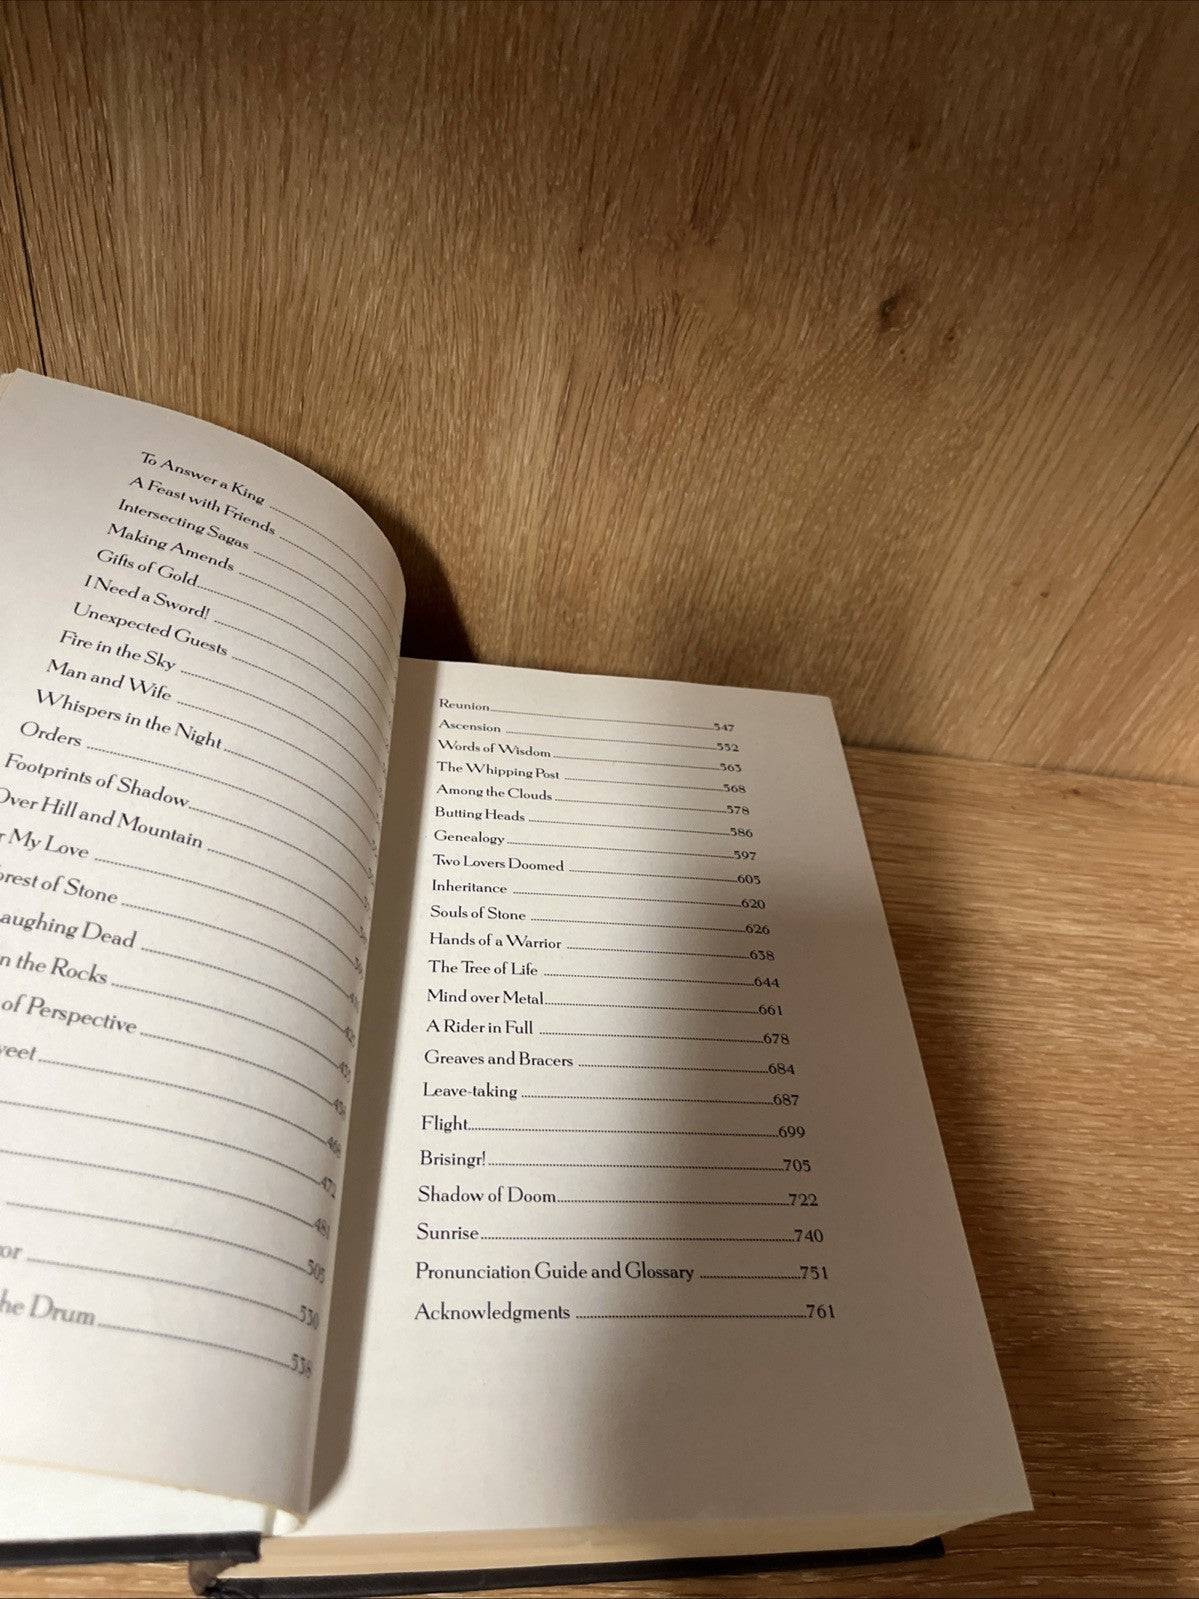 To Answer a King
A Feast with Friends
Intersecting Sagas
Making Amends
Gifts of Gold
I Need a Sword!
Unexpected Guests
Fire in the Sky
Man and Wife
Whispers in the Night
Orders
Footprints of Shadow
Over Hill and Mountain
My Love
of Stone
Dead
the Rocks
of Perspective
468
472
481
505
530
the Drum 538
Reunion 547
Ascension 552
Words of Wisdom 563
The Whipping Post 568
Among the Clouds 578
Butting Heads 586
Genealogy 597
Two Lovers Doomed 605
Inheritance 620
Souls of Stone 626
Hands of a Warrior 638
The Tree of Life 644
Mind over Metal 661
A Rider in Full 678
Greaves and Bracers 684
Leave-taking 687
Flight 699
Brisingr! 705
Shadow of Doom 722
Sunrise 740
Pronunciation Guide and Glossary 751
Acknowledgments 761